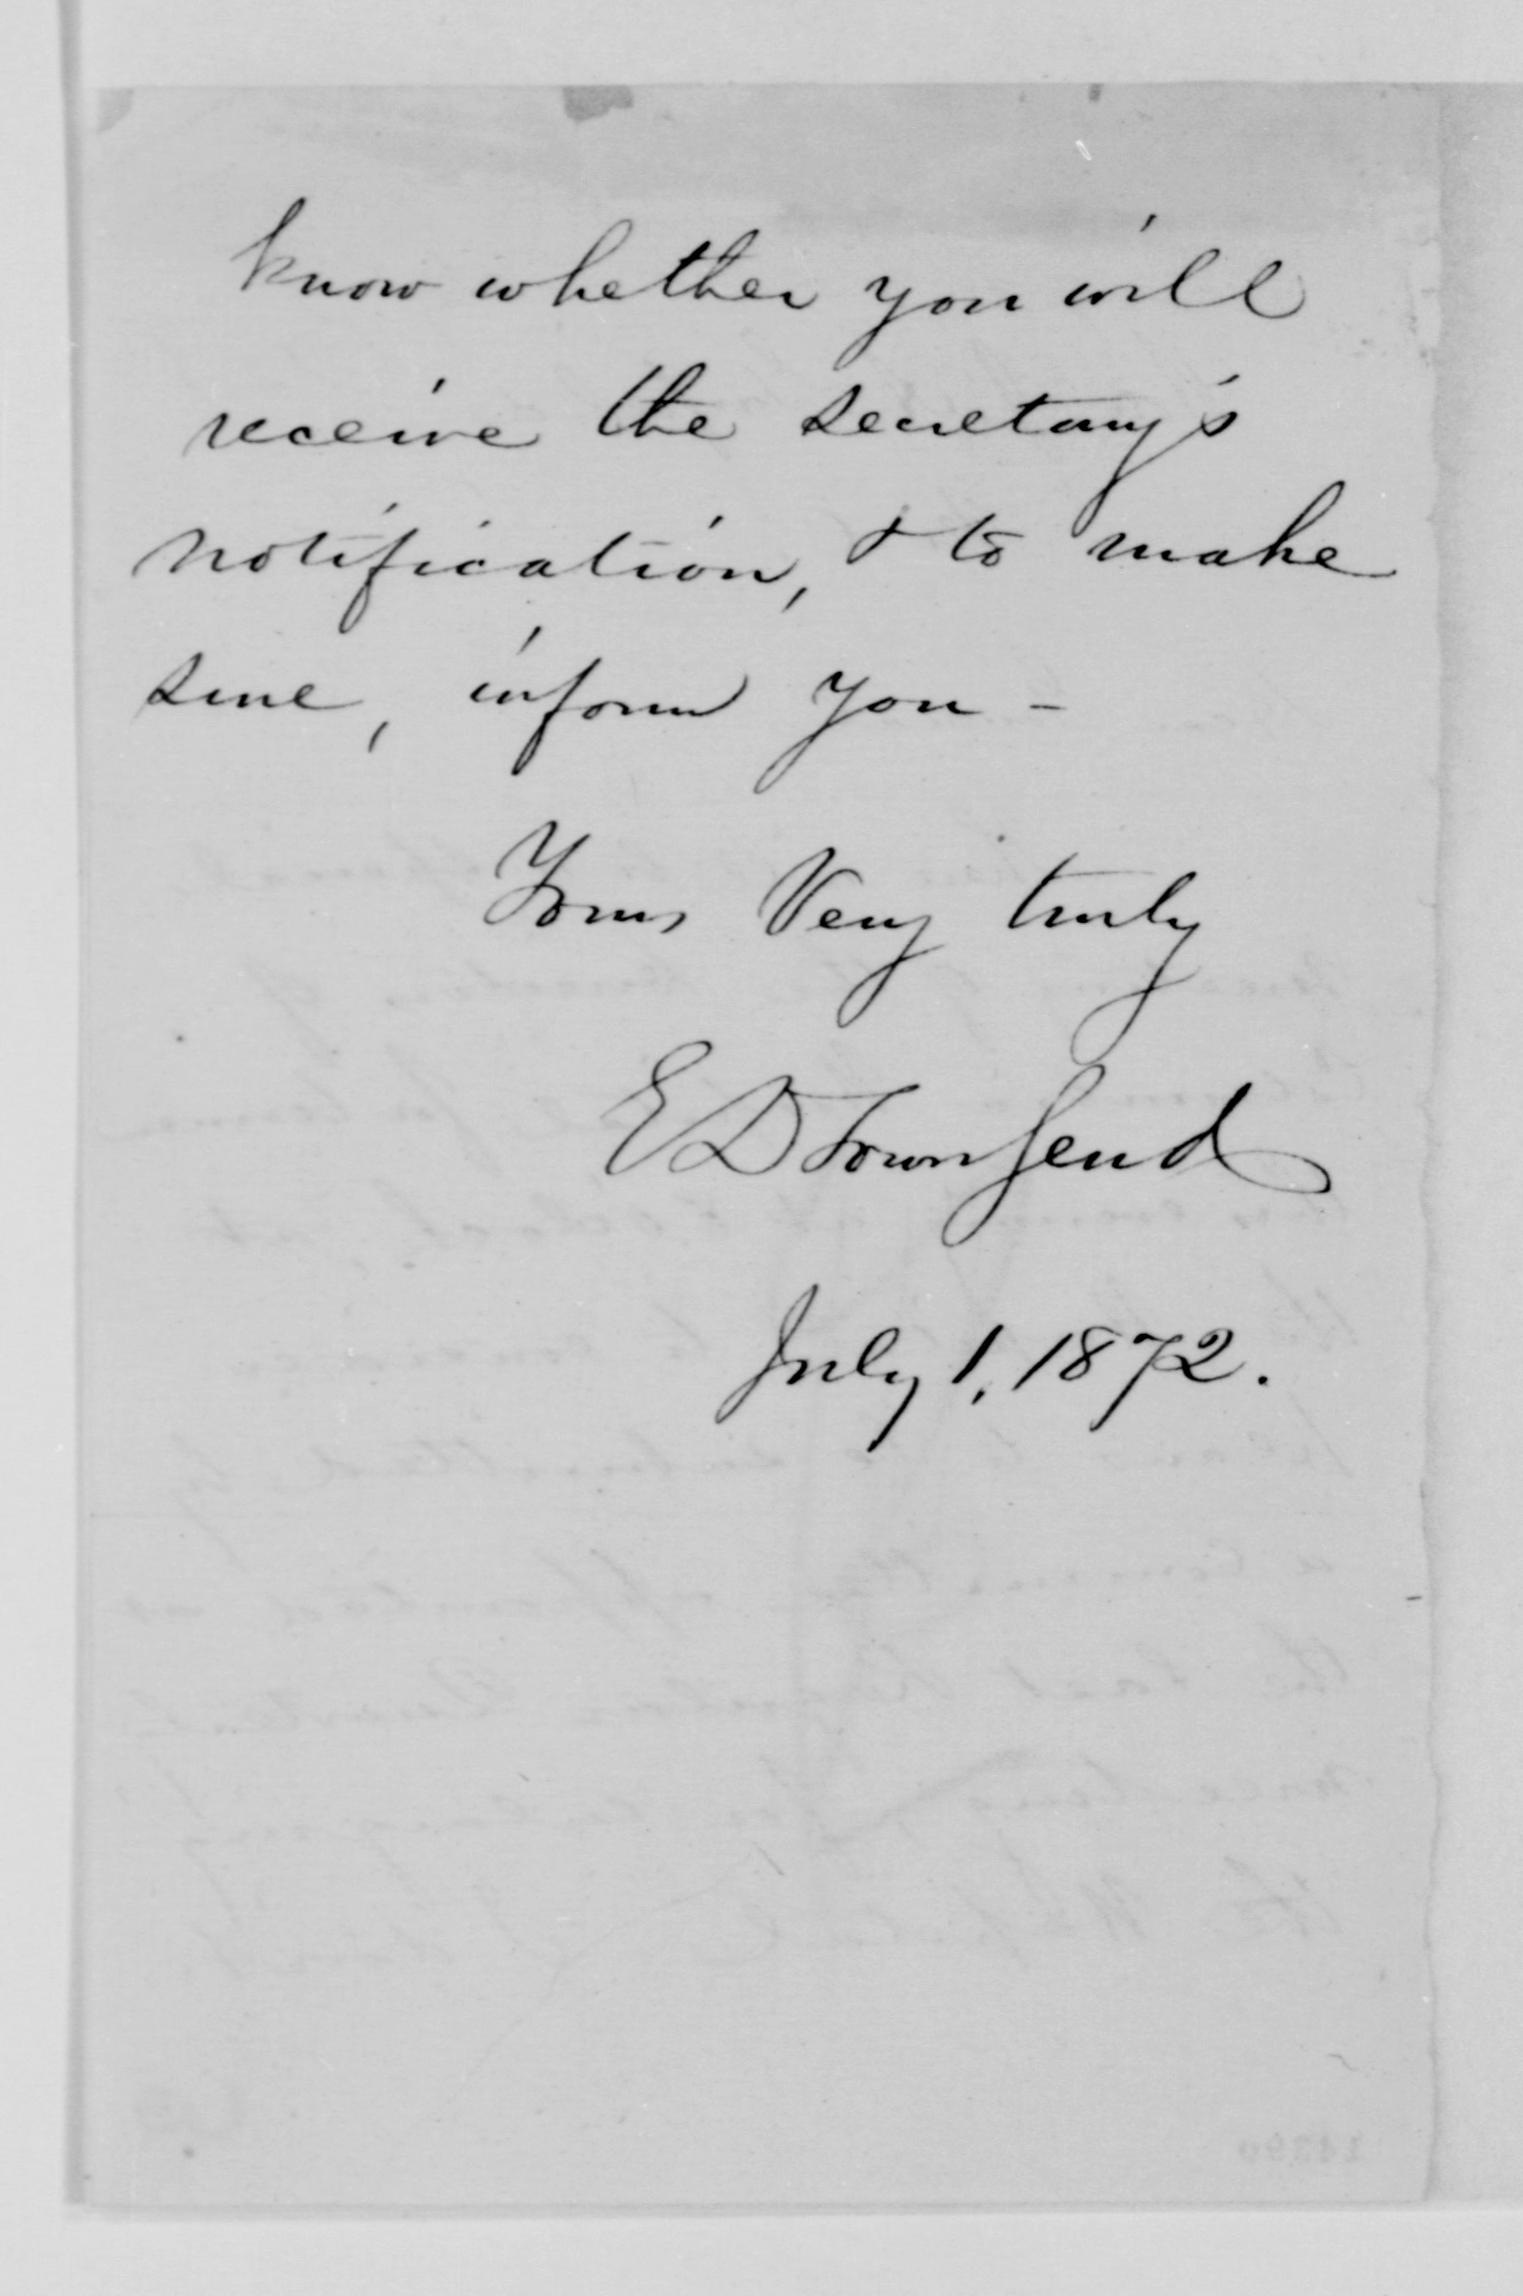 know whether you will
receive the secretary's
notification, & to make
sure, inform you -
Yours Very truly
E D Townsend
July 1, 1872.